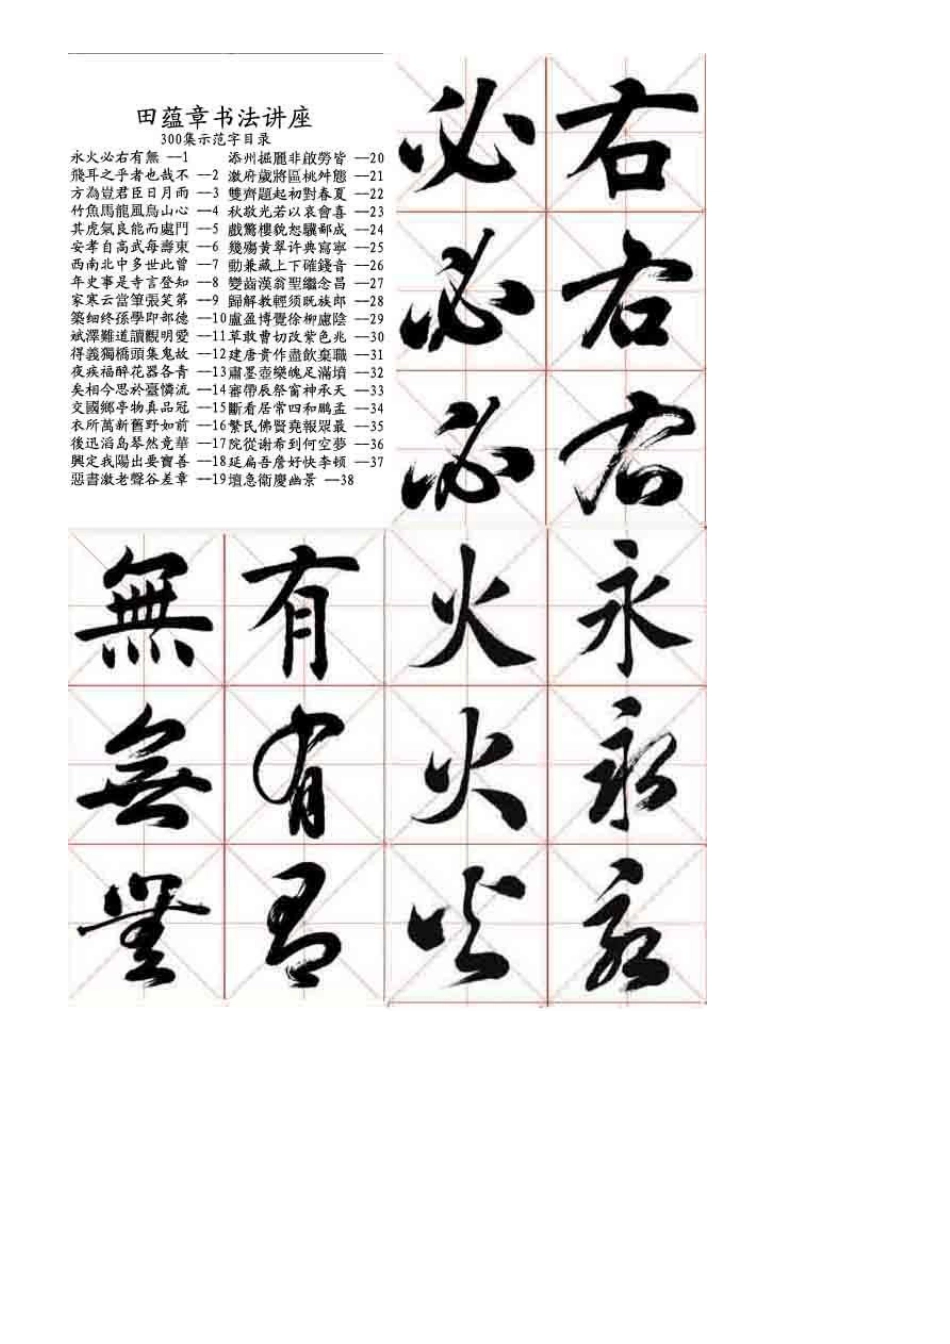 田蕴章书法讲座
300集示范字目录
永火必右有無 —1
飛耳之乎者也哉不 —2
方為豈君臣日月雨 —3
竹魚馬龍風鳥山心 —4
其虎氣良能而處門 —5
安孝自高武每壽東 —6
西南北中多世此曾 —7
年史事是寺言登知 —8
家寒云當筆張笑第 —9
築細終孫學即部德 —10
斌澤難道讀觀明愛 —11
得義獨橋頭集鬼故 —12
夜疾福醉花器各青 —13
矣相今思於臺憐流 —14
交國鄉亭物真品冠 —15
衣所萬新舊野如前 —16
後迅滔島琴然竟華 —17
興定我陽出要寶善 —18
惡書漱老聲谷差章 —19
添州掘麗非啟勞皆 —20
激府歲將區桃舛態 —21
雙齊題起初對春夏 —22
秋敬光若以哀會喜 —23
戲驚樓貌恕驥鄰成 —24
幾殤黃翠许典寫寧 —25
動兼藏上下確錢音 —26
變齒漢翁聖繼念昌 —27
歸解教輕須既族郎 —28
盧盈博覺徐柳慮陰 —29
草敢曹切改紫色兆 —30
建唐貴作盡飲棄職 —31
肅墨壺欒魄足滿墳 —32
審帶辰祭窗神承天 —33
斷看居常四和鵬孟 —34
繁民佛賢堯報眾最 —35
院從謝希到何空夢 —36
延扁吾詹好快李頓 —37
壇急衛慶幽景 —38
必 右
必 右
必 右
無 有 火 永
無 有 火 永
無 有 火 永